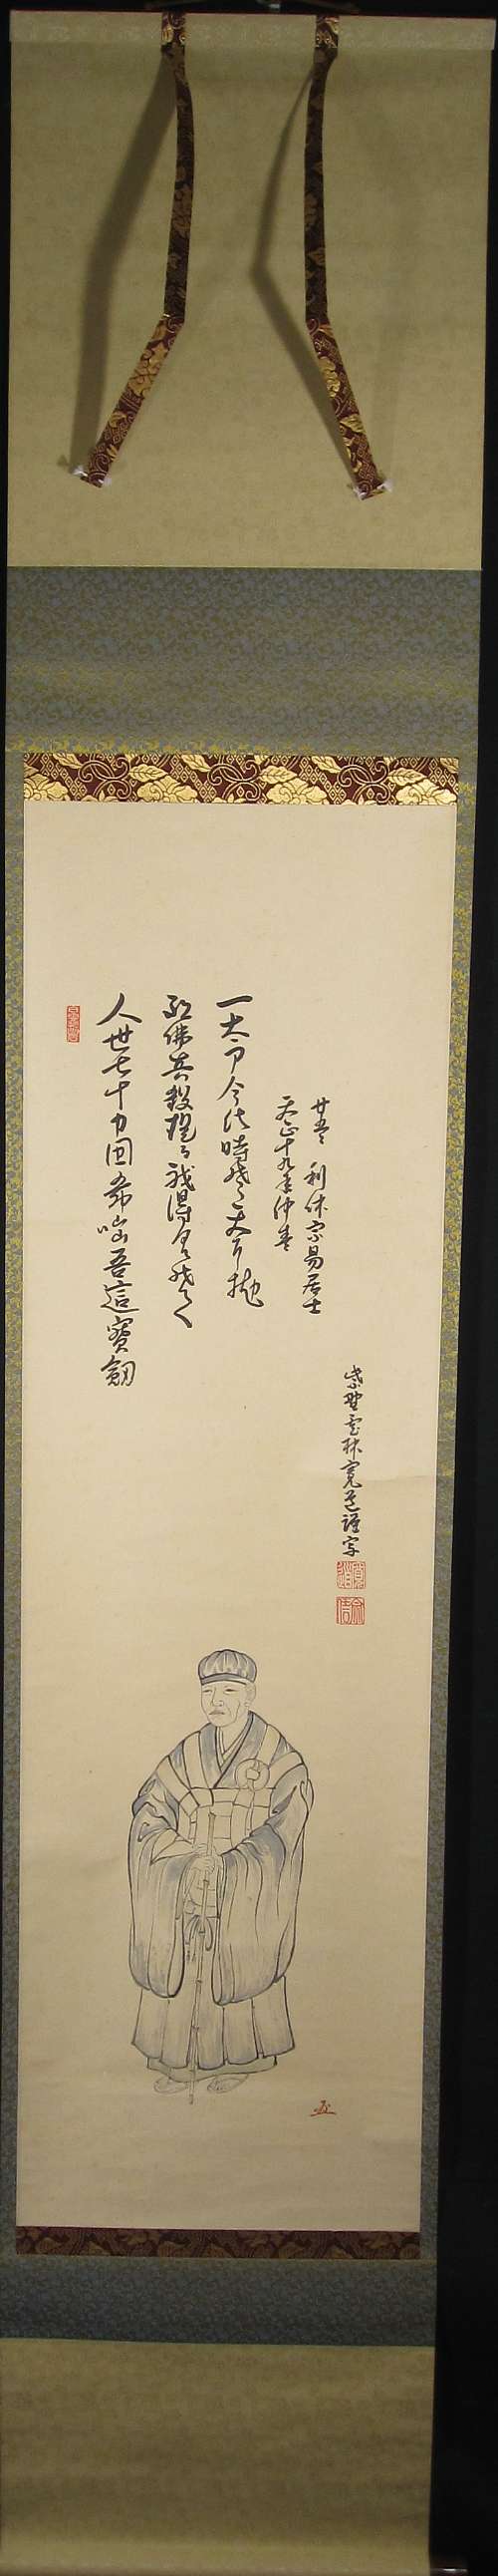 人世七十力囲希咄吾這寶劔
祖佛共殺提ル我得具足
一太刀今此時そ天に抛
天正十九年仲春
廿五日 利休宗易居士
紫野雲林寛道謹写